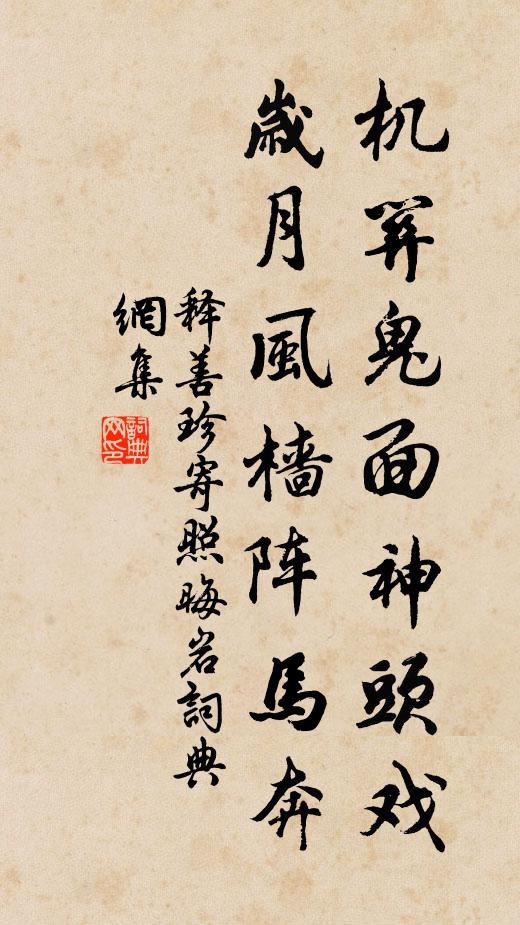 机穽鬼面神頭戏
歲月風樯阵馬奔
释善珍寄照晦岩詞典
網集
詞典
网印